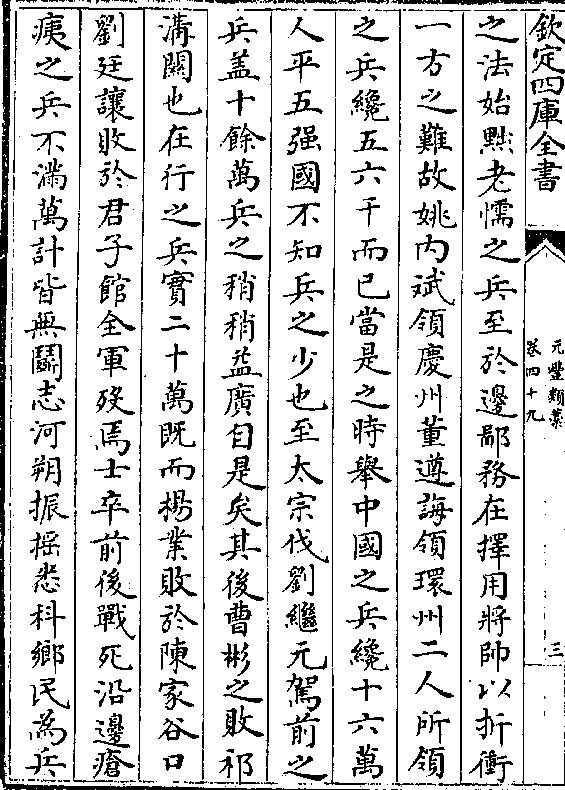 欽定四庫全書
元豐類藁
卷四十九
三
之法始黜老懦之兵至於邊鄙務在擇用將帥以折衝
一方之難故姚内斌領慶州董遵誨領環州二人所領
之兵纔五六千而已當是之時舉中國之兵纔十六萬
人平五强國不知兵之少也至太宗伐劉繼元駕前之
兵盖十餘萬兵之稍稍益廣自是矣其後曹彬之敗祁
溝關也在行之兵實二十萬既而楊業敗於陳家谷口
劉廷讓敗於君子館全軍歿焉士卒前後戰死沿邊瘡
痍之兵不滿萬計皆無鬭志河朔振搖悉科鄉民為兵